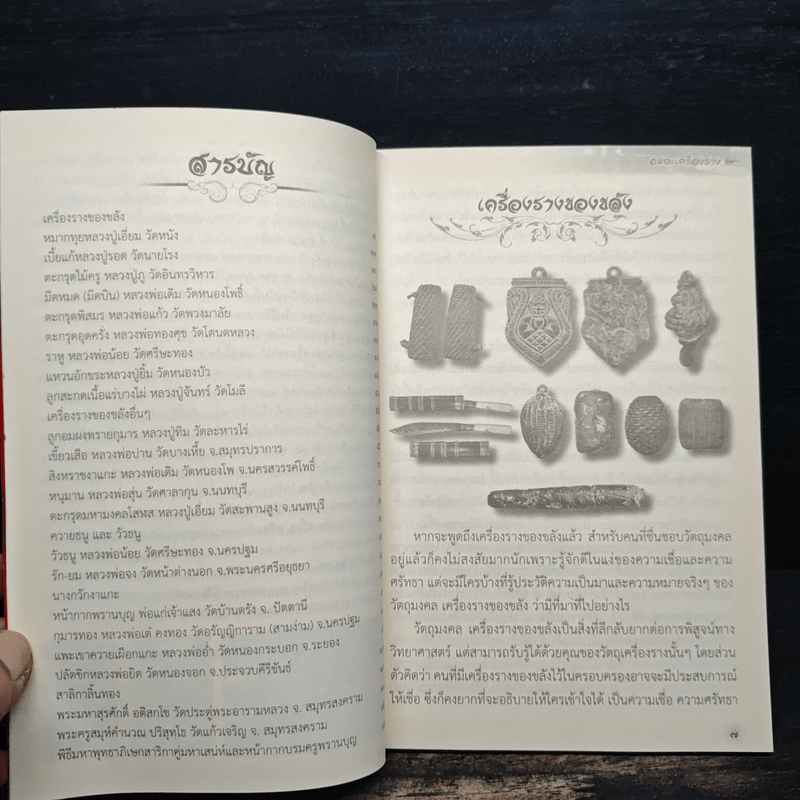 สารบัญ
เครื่องรางของขลัง
หมากทุยหลวงปู่เอี่ยม วัดหนัง
เบี้ยแก้หลวงปู่รอด วัดนายโรง
ตะกรุดไม้ครู หลวงปู่ภู วัดอินทรวิหาร
มีดหมด (มีดบิน) หลวงพ่อเดิม วัดหนองโพธิ์
ตะกรุดพิสมร หลวงพ่อแก้ว วัดพวงมาลัย
ตะกรุดอุดครั่ง หลวงพ่อทองศุข วัดโตนดหลวง
ราหู หลวงพ่อน้อย วัดศรีษะทอง
แหวนอักขระหลวงปู่ยิ้ม วัดหนองบัว
ลูกสะกดเนื้อแร่บางไผ่ หลวงปู่จันทร์ วัดโมลี
เครื่องรางของขลังอื่นๆ
ลูกอมผงพรายกุมาร หลวงปู่ทิม วัดละหารไร่
เขี้ยวเสือ หลวงพ่อปาน วัดบางเหี้ย จ.สมุทรปราการ
สิงหราชงาแกะ หลวงพ่อเดิม วัดหนองโพ จ.นครสวรรค์โพธิ์
หนุมาน หลวงพ่อสุ่น วัดศาลากุน จ.นนทบุรี
ตะกรุดมหามงคลโสฬส หลวงปู่เอี่ยม วัดสะพานสูง จ.นนทบุรี
ควายธนู และ วัวธนู
วัวธนู หลวงพ่อน้อย วัดศรีษะทอง จ.นครปฐม
รัก-ยม หลวงพ่อจง วัดหน้าต่างนอก จ.พระนครศรีอยุธยา
นางกวักงาแกะ
หน้ากากพรานบุญ พ่อแก่เจ้าแสง วัดบ้านตรัง จ. ปัตตานี
กุมารทอง หลวงพ่อเต๋ คงทอง วัดอรัญญิการาม (สามง่าม) จ.นครปฐม
แพะเขาควายเผือกแกะ หลวงพ่ออ่ำ วัดหนองกระบอก จ.ระยอง
ปลัดขิกหลวงพ่อยิด วัดหนองจอก จ.ประจวบคีรีขันธ์
สาลิกาลิ้นทอง
พระมหาสุรศักดิ์ อติสกโข วัดประดู่พระอารามหลวง จ. สมุทรสงคราม
พระครูสมุห์คำนวณ ปริสุทโธ วัดแก้วเจริญ จ. สมุทรสงคราม
พิธีมหาพุทธาภิเษกสาริกาคู่มหาเสน่ห์และหน้ากากบรมครูพรานบุญ
อมตะเครื่องราง
เครื่องรางของขลัง
หากจะพูดถึงเครื่องรางของขลังแล้ว สำหรับคนที่ชื่นชอบวัตถุมงคล
อยู่แล้วก็คงไม่สงสัยมากนักเพราะรู้จักดีในแง่ของความเชื่อและความ
ศรัทธา แต่จะมีใครบ้างที่รู้ประวัติความเป็นมาและความหมายจริงๆ ของ
วัตถุมงคล เครื่องรางของขลัง ว่ามีที่มาที่ไปอย่างไร
วัตถุมงคล เครื่องรางของขลังเป็นสิ่งที่ลึกลับยากต่อการพิสูจน์ทาง
วิทยาศาสตร์ แต่สามารถรับรู้ได้ด้วยคุณของวัตถุเครื่องรางนั้นๆ โดยส่วน
ตัวคิดว่า คนที่มีเครื่องรางของขลังไว้ในครอบครองอาจจะมีประสบการณ์
ให้เชื่อ ซึ่งก็คงยากที่จะอธิบายให้ใครเข้าใจได้ เป็นความเชื่อ ความศรัทธา
๗